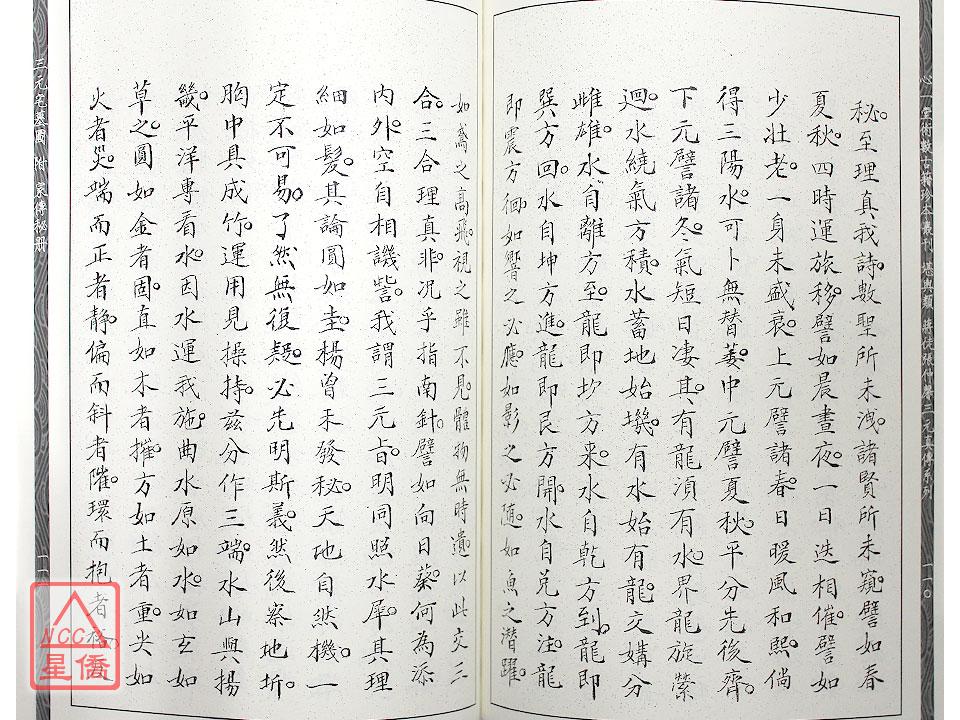 心一堂術數古籍珍本叢刊　堪輿類　蔣徒張仲馨三元真傳系列
一一〇
秘。至理真我詩。數聖所未洩。諸賢所未窺。譬如春
夏秋。四時運旅移。譬如晨晝夜。一日迭相催。譬如
少壯老。一身未盛衰。上元譬諸春。日暖風和熙。倘
得三陽水。可卜無替萎。中元譬夏秋。平分先後齊。
下元譬諸冬。氣短日凄其。有龍須有水。界龍旋縈
迴。水繞氣方積。水蓄地始墩。有水始有龍。交媾分
雌雄。水自離方至。龍即坎方來。水自乾方到。龍即
巽方回。水自坤方進。龍即艮方開。水自兌方注。龍
即震方徊。如響之必應。如影之必随。如魚之潛躍。
如鳶之高飛。視之雖不見。體物無時遺。以此交三
合。三合理真非。况乎指南針。譬如向日葵。何為添
内外。空自相譏訾。我謂三元旨。明同照水犀。其理
細如髮。其論圓如圭。楊曾未發秘。天地自然機。一
定不可易。了然無復疑。必先明斯義。然後察地圻。
胸中具成竹。運用見操持。茲分作三端。水山與揚
畿。平洋專看水。因水運我施。曲水原如水。如玄如
草之。圓如金者固。直如木者摧。方如土者重。尖如
火者災。端而正者静。偏而斜者隤。環而抱者
三元宅墓圖　附　家傳秘冊
NCC
星僑